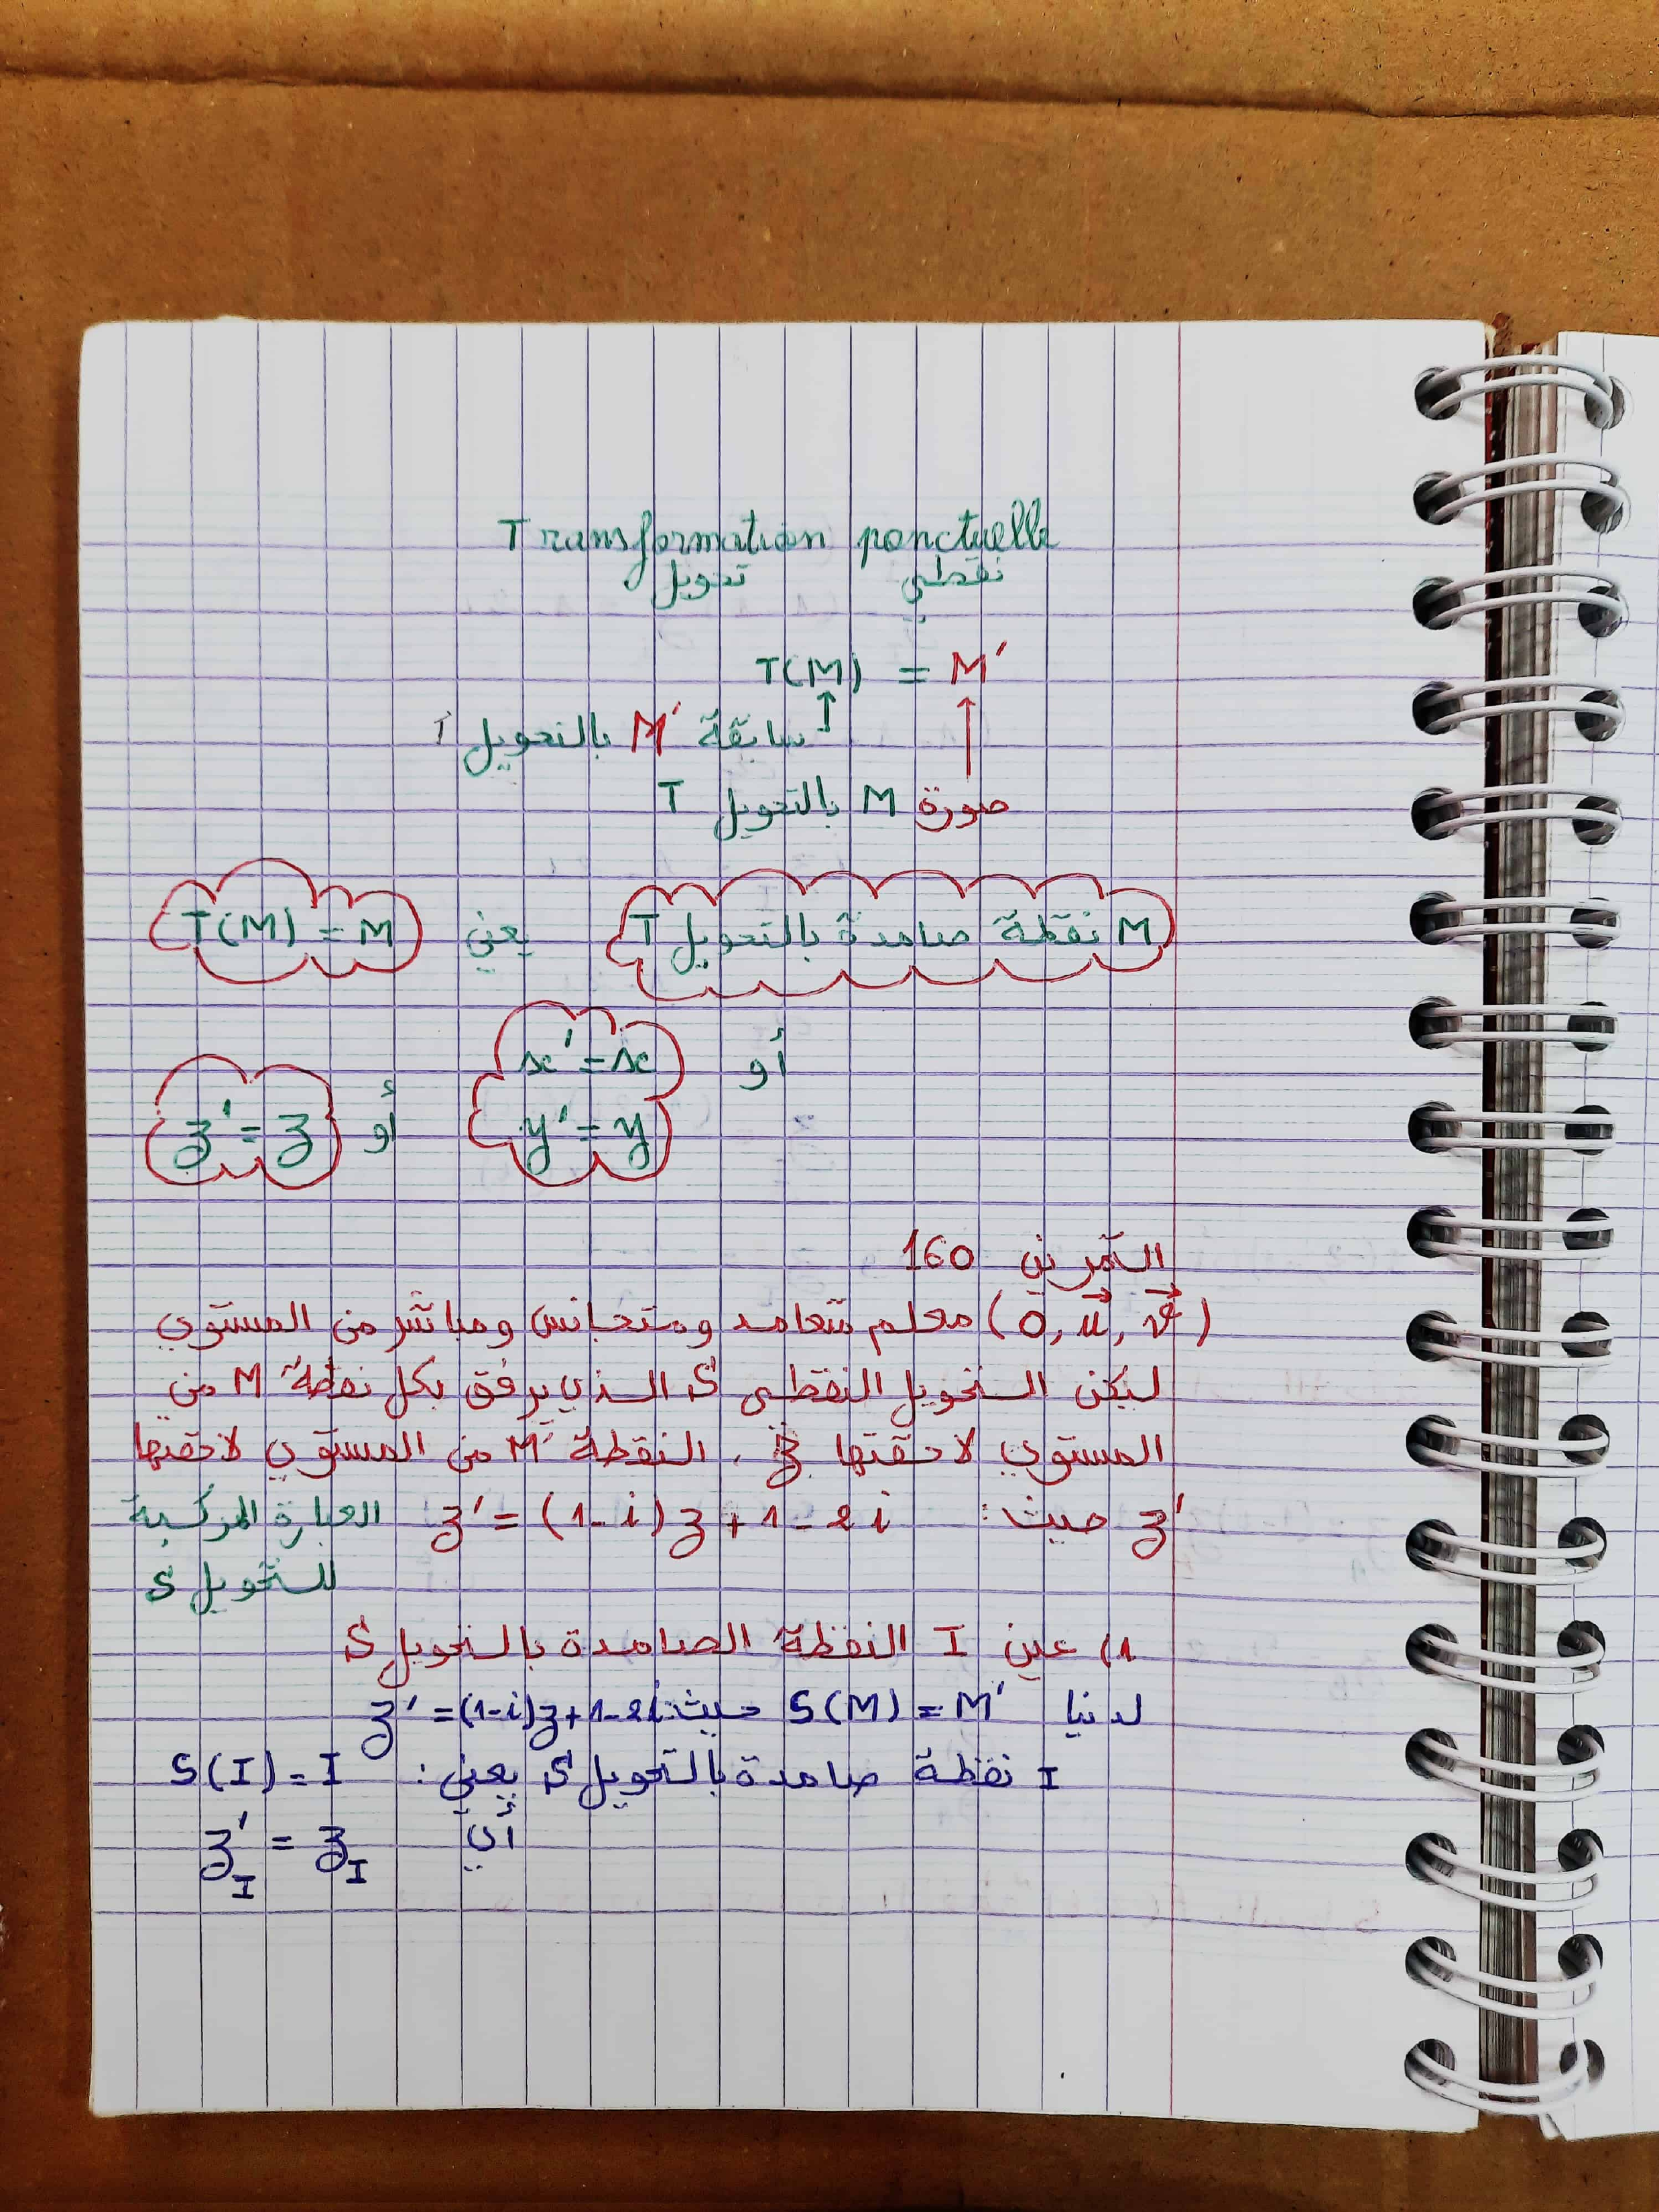 Transformation ponctuelle
تحويل نقطي
T(M) = M'
سابقة M' بالتحويل
صورة M بالتحويل T
M نقطة صامدة بالتحويل T يعني T(M) = M
أو x' = x
y' = y أو z' = z
التمرين 160
(O, u, v) معلم متعامد ومتجانس ومباشر من المستوي
ليكن التحويل النقطي S الذي يرفق بكل نقطة M من
المستوي لاحقتها z، النقطة M' من المستوي لاحقتها
z' حيث: z' = (1-i)z + 1 - 2i العبارة المركبة
للتحويل S
1) عين I النقطة الصامدة بالتحويل S
لدينا S(M) = M' حيث: z' = (1-i)z + 1 - 2i
I نقطة صامدة بالتحويل S يعني: S(I) = I
أي z'_I = z_I